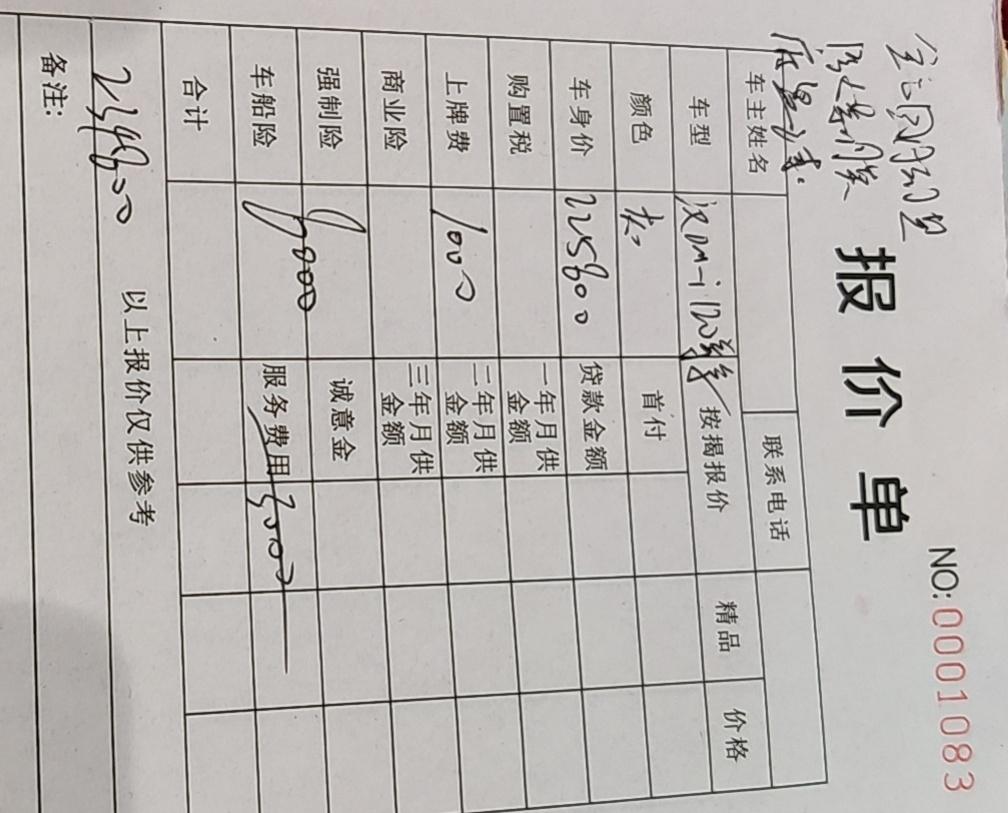 NO:0001083
报价单
车主姓名 联系电话
车型 汉DM-i 120 按揭报价 精品 价格
颜色 首付
车身价 225800 贷款金额
购置税 一年月供金额
上牌费 1000 二年月供金额
商业险 三年月供金额
强制险 诚意金
车船险 9000 服务费用 3000
合计
以上报价仅供参考
备注: